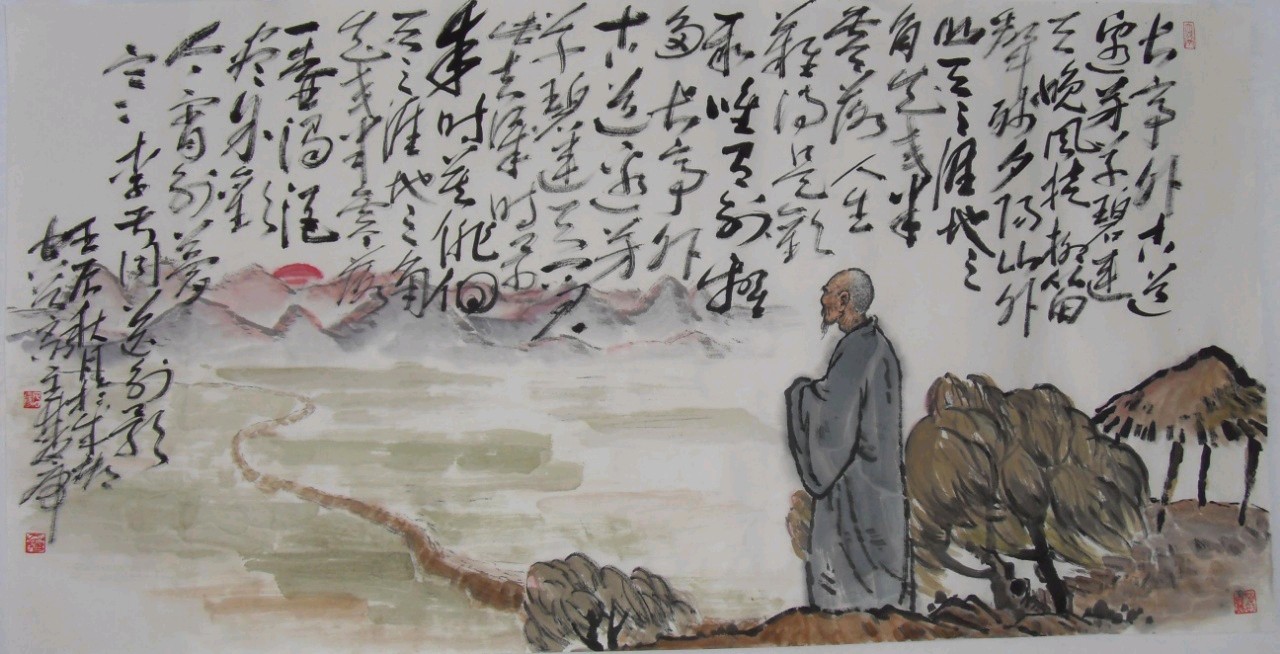 长亭外古道
边芳草碧连
天晚风拂柳笛
声残夕阳山外
山天之涯地之
角知交半
零落人生
难得是欢
聚唯有别离
多长亭外
古道边芳
草碧连天问
此去几时
来时莫徘徊
天之涯地之角
知交半零落
一壶浊酒
尽余欢
今宵别梦
寒李叔同送别歌
壬辰秋月